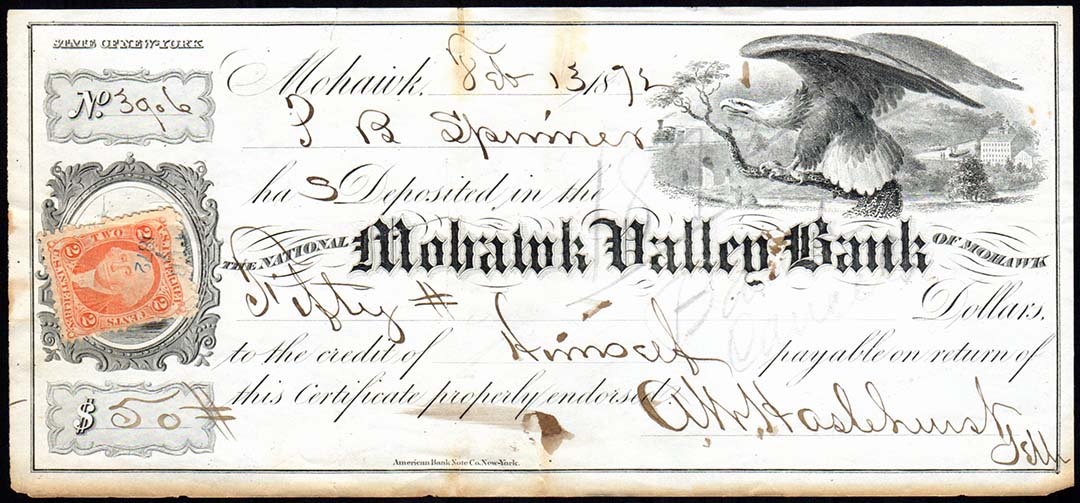 STATE OF NEW-YORK
Mohawk, Feb 13, 1872
No. 3906
P B Spinner
has Deposited in the
THE NATIONAL Mohawk Valley Bank OF MOHAWK
Fifty # Dollars,
to the credit of Himself payable on return of
this Certificate properly endorsed
$ 50 #
A W Haslehurst
Tell
American Bank Note Co. New-York.
TWO
2 2
CENTS
1872